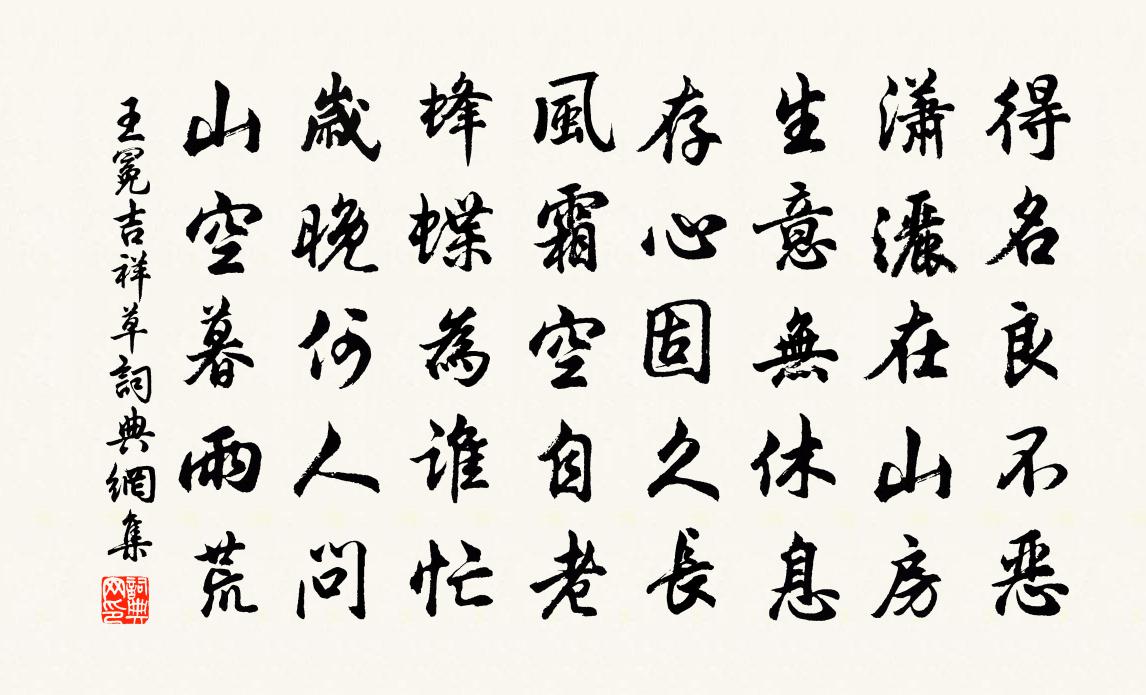 得名良不恶
潇灑在山房
生意無休息
存心固久長
風霜空自老
蜂蝶為谁忙
歲晚何人问
山空暮雨荒
王冕吉祥草詞典網集
詞典網印